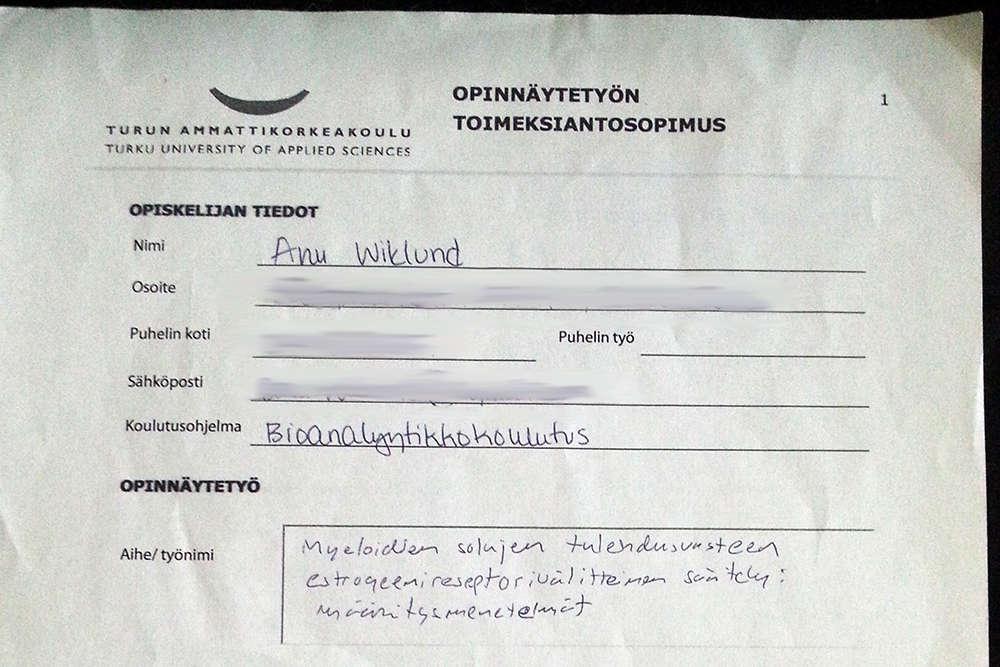 TURUN AMMATTIKORKEAKOULU
TURKU UNIVERSITY OF APPLIED SCIENCES
OPINNÄYTETYÖN
TOIMEKSIANTOSOPIMUS
1
OPISKELIJAN TIEDOT
Nimi Anu Wiklund
Osoite
Puhelin koti Puhelin työ
Sähköposti
Koulutusohjelma Bioanalyytikkokoulutus
OPINNÄYTETYÖ
Aihe/ työnimi Myeloidien solujen tulehdusvasteen
estrogeenireseptorivälitteinen säätely:
määritysmenetelmät